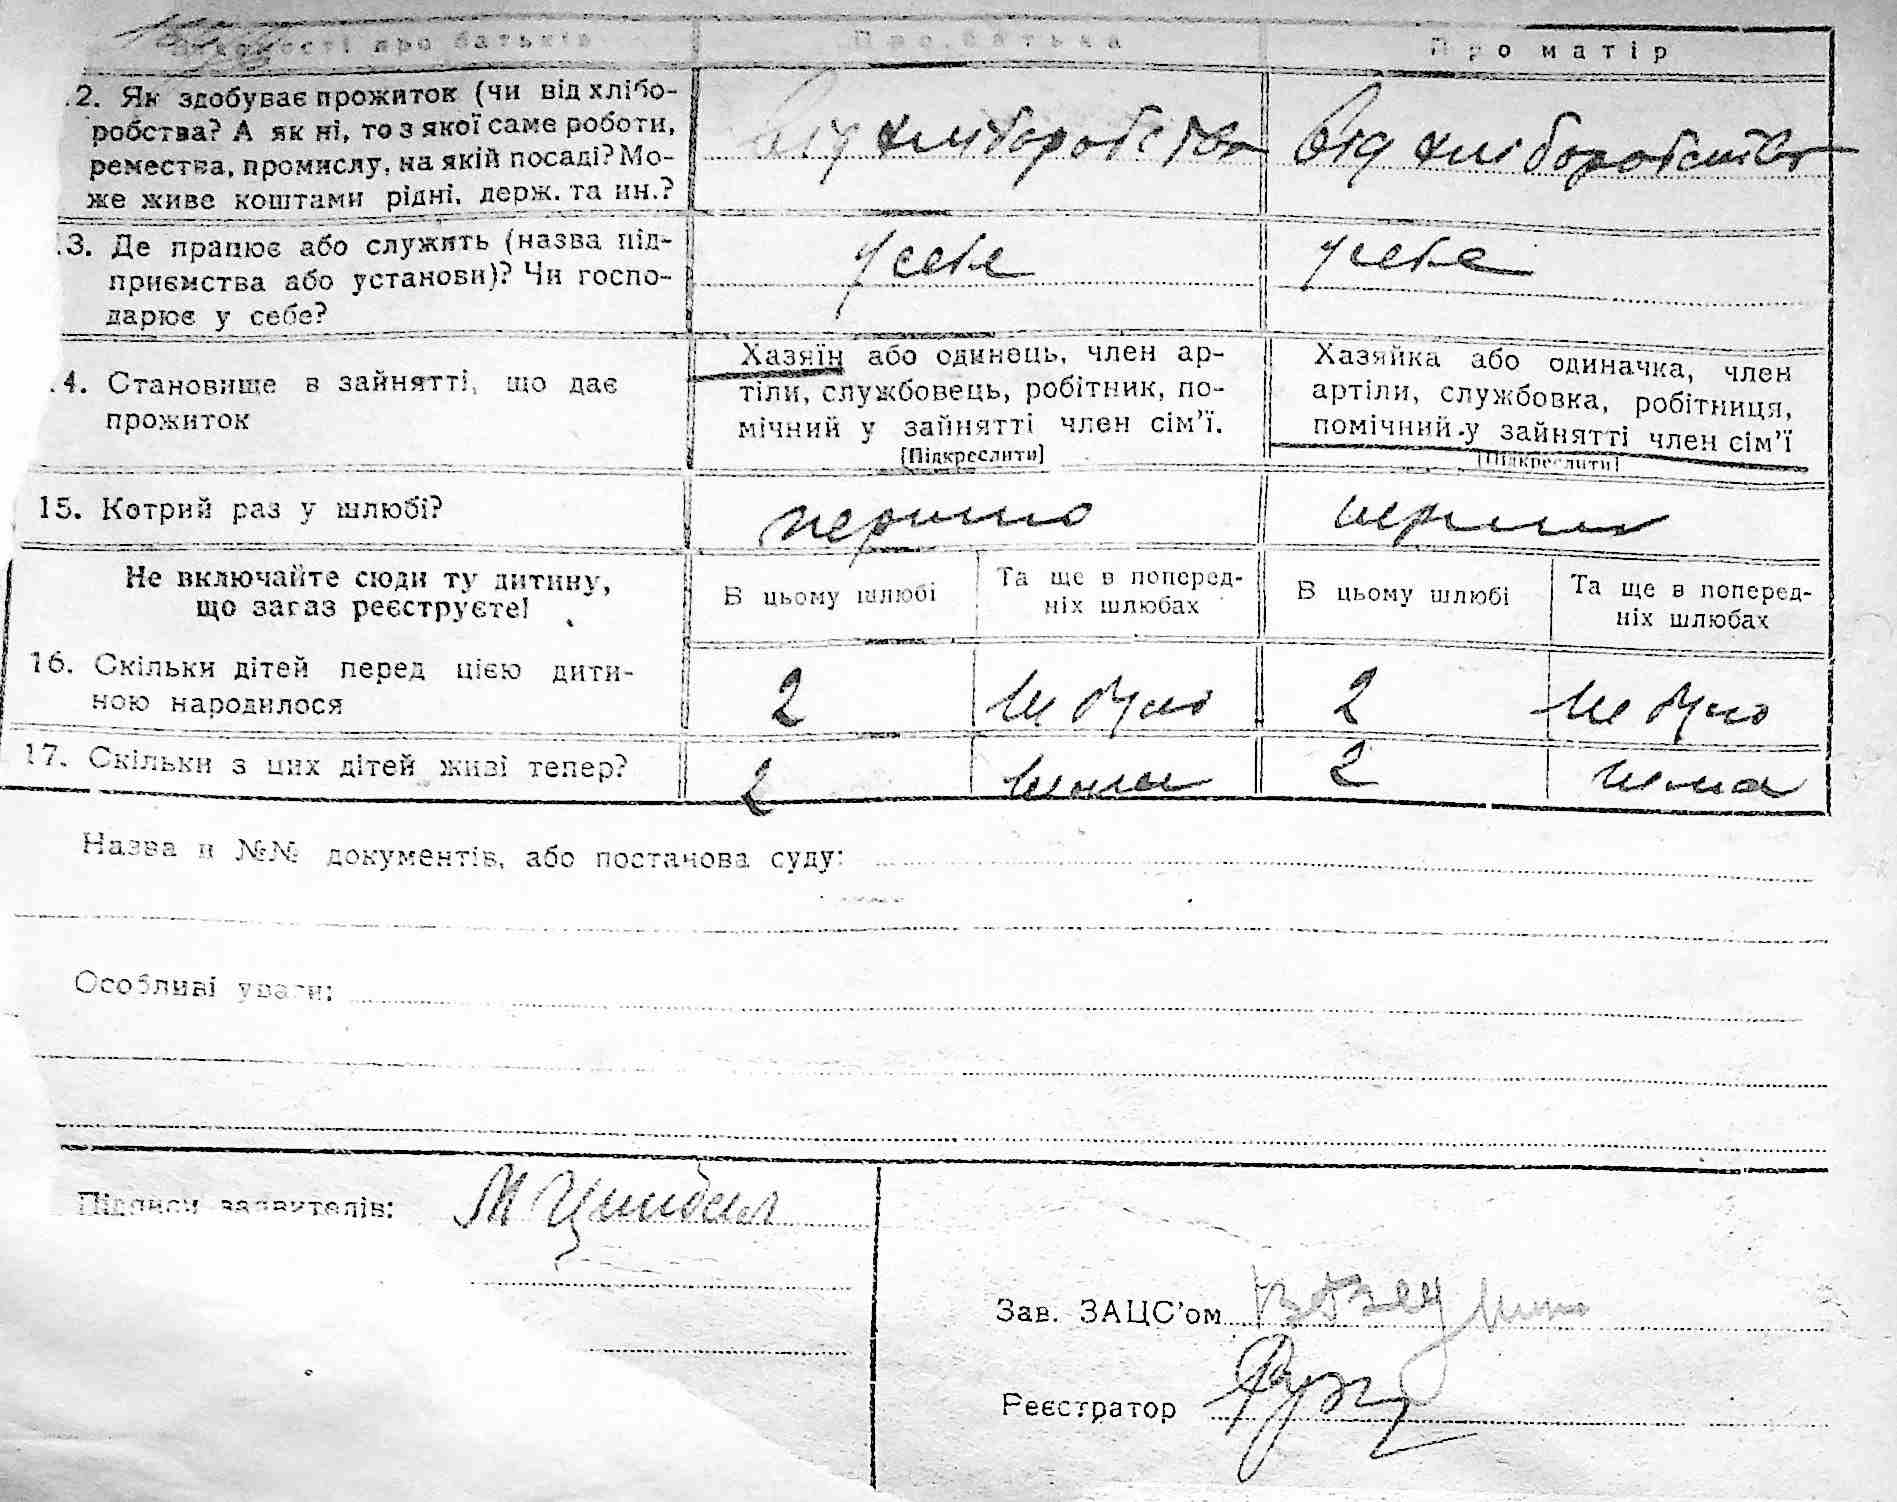 Відомості про батьків Про батька Про матір
.2. Як здобуває прожиток (чи від хлібо-
робства? А як ні, то з якої саме роботи,
ремества, промислу, на якій посаді? Мо-
же живе коштами рідні, держ. та ин.?
від хліборобства від хліборобства
.3. Де працює або служить (назва під-
приємства або установи)? Чи госпо-
дарює у себе?
у себе у себе
.4. Становище в зайнятті, що дає
прожиток
Хазяїн або одинець, член ар-
тіли, службовець, робітник, по-
мічний у зайнятті член сім'ї.
[Підкреслити]
Хазяйка або одиначка, член
артіли, службовка, робітниця,
помічний у зайнятті член сім'ї
[Підкреслити]
15. Котрий раз у шлюбі?
Не включайте сюди ту дитину,
що зараз реєструєте!
В цьому шлюбі
Та ще в поперед-
ніх шлюбах
В цьому шлюбі
Та ще в поперед-
ніх шлюбах
16. Скільки дітей перед цією дити-
ною народилося
2 не було 2 не було
17. Скільки з цих дітей живі тепер?
2 нема 2 нема
Назва й №№ документів, або постанова суду:
Особливі уваги:
Підписи заявителів:
Зав. ЗАЦС'ом
Реєстратор